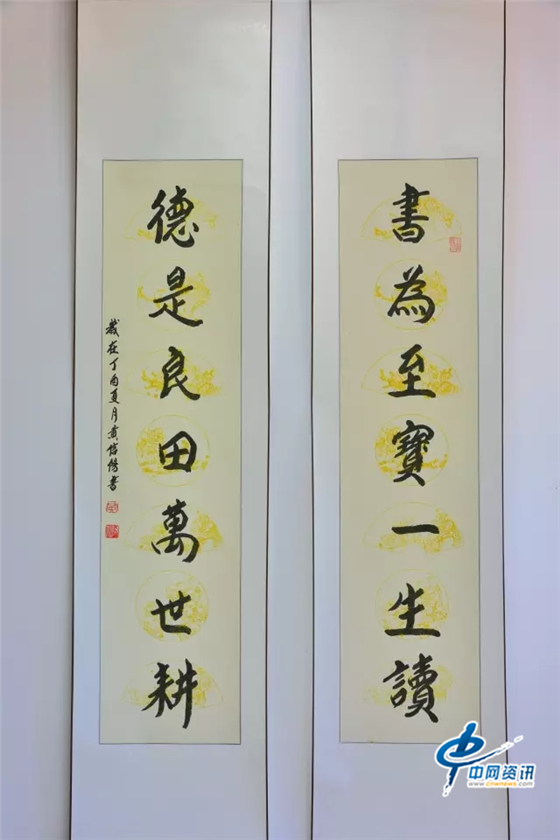 書為至寶一生讀
德是良田萬世耕
歲在丁酉夏月黄培傑書
中网资讯
www.cnwnews.com